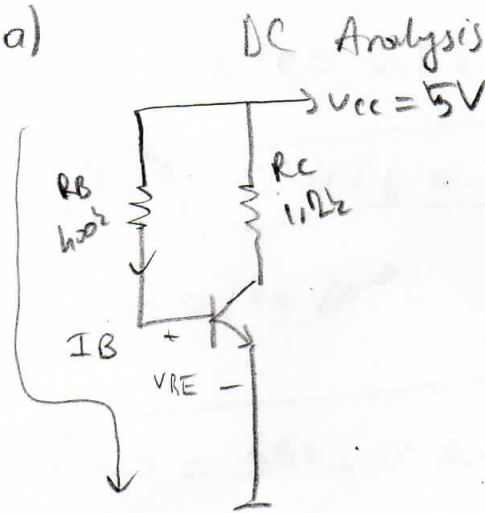 a) DC Analysis
VCC = 5V
RB
400k
RC
1,2k
IB
+
VBE -